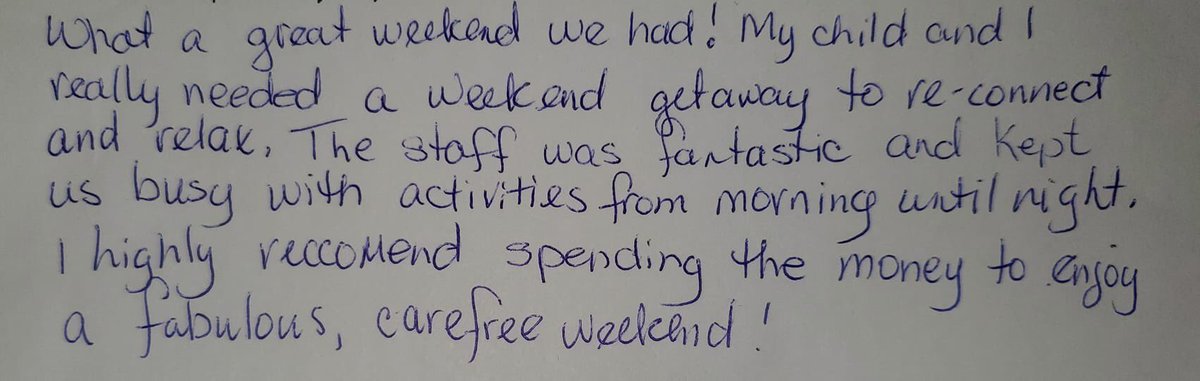 What a great weekend we had! My child and I
really needed a weekend getaway to re-connect
and relax. The staff was fantastic and kept
us busy with activities from morning until night.
I highly reccomend spending the money to enjoy
a fabulous, carefree weekend!